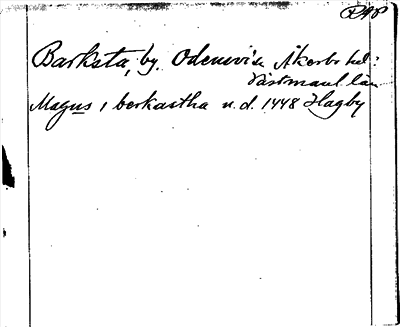 Barksta, by. Odensvi s. Åkerbo hd:
Västmanl. län
Magns i berkastha u. d. 1448 Hagby